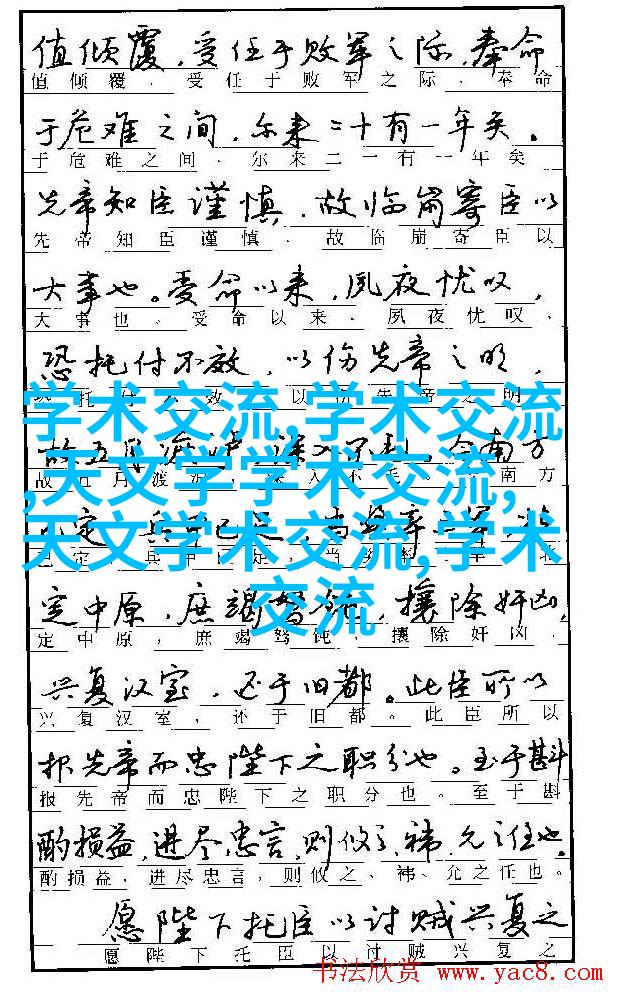 值倾覆，受任于败军之际，奉命
值倾覆，受任于败军之际，奉命
于危难之间，尔来二十有一年矣。
于危难之间，尔来二一有一年矣
先帝知臣谨慎，故临崩寄臣以
先帝知臣谨慎，故临崩寄臣以
大事也。受命以来，夙夜忧叹，
大事也。受命以来，夙夜忧叹，
恐托付不效，以伤先帝之明，
托付 效 以 先帝之明
学术交流,学术交流
故五月渡 深入不 今南方
故五月渡 ，深入不毛。 南方
,天文学学术交流,
已定，兵 已足，当
定，兵 足，当 北
天文学术交流,学术
定中原，庶竭驽钝，攘除奸凶，
交流
定中原，庶竭驽钝，攘除奸凶，
兴复汉室，还于旧都。此臣所以
兴复汉室，还于旧都。此臣所以
报先帝而忠陛下之职分也。至于斟
报先帝而忠陛下之职分也。至于斟
酌损益，进尽忠言，则攸之、祎、允之任也。
酌损益，进尽忠言，则攸之、祎、允之任也。
愿陛下托臣以讨贼兴复之
愿陛下托臣以讨贼兴复之
书法欣赏 www.yac8.com